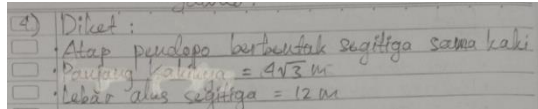 4) Diket :
• Atap pendopo berbentuk segitiga sama kaki
• Panjang kakinya = 4√3 m
• Lebar alas segitiga = 12 m